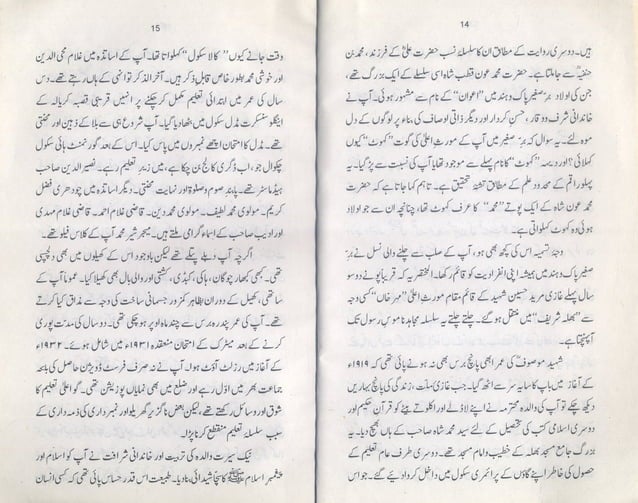 14
ہیں۔ دوسری روایت کے مطابق ان کا سلسلۂ نسب حضرت علیؓ کے فرزند، محمد بن
حنفیہؒ سے جا ملتا ہے۔ حضرت محمد عون قطب شاہ اسی سلسلے کے ایک بزرگ تھے،
جن کی اولاد برِ صغیر پاک و ہند میں "اعوان" کے نام سے مشہور ہوئی۔ آپ نے
خاندانی شرف و وقار، حسنِ کردار اور دیگر ذاتی اوصاف کی بناء پر لوگوں کے دل
موہ لئے۔ یہ سوال کہ برِ صغیر میں آپ کے مورثِ اعلیٰ کی گوت "کہوٹ" کیوں
کہلائی؟ اور دیہہ "کہوٹ" کا نام پہلے سے موجود تھا یا آپ کی نسبت سے پڑ گیا۔ یہ
پہلو راقم کے محدود علم کے مطابق تشنۂ تحقیق ہے۔ تاہم کہا جاتا ہے کہ حضرت
محمد عون شاہ کے ایک پوتے "محمد" کا عرف کہوٹ تھا، چنانچہ ان سے جو اولاد
ہوئی وہ کہوٹ کہلواتی ہے۔
وجۂ تسمیہ اس کی کچھ بھی ہو، آپ کے صلب سے چلنے والی نسل نے برِ
صغیر پاک و ہند میں ہمیشہ اپنی انفرادیت کو قائم رکھا۔ المختصر یہ کہ قریباً پونے دو سو
سال پہلے غازی مرید حسین شہید کے قائم مقام مورثِ اعلیٰ "مہر خاں" کسی وجہ
سے "بھلہ شریف" میں منتقل ہو گئے۔ چلتے چلتے یہ سلسلہ مجاہدِ ناموسِ رسول تک
آ پہنچتا ہے۔
شہید موصوفؒ کی عمر ابھی پانچ برس بھی نہ ہونے پائی تھی کہ ۱۹۱۹ء
کے آغاز میں باپ کا سایہ سر سے اٹھ گیا۔ جب غازی ملت، زندگی کی پانچ بہاریں
دیکھ چکے تو آپ کی والدہ محترمہ نے اپنے لاڈلے اور اکلوتے بیٹے کو قرآنِ حکیم اور
دوسری اسلامی کتب کی تحصیل کے لئے سید محمد شاہ صاحب کے ہاں بھیج دیا۔ یہ
بزرگ جامع مسجد بھلہ کے خطیب و امام مسجد تھے۔ دوسری طرف عام تعلیم کے
حصول کی خاطر اپنے گاؤں کے پرائمری سکول میں داخل کروا دیئے گئے۔ جو اس
15
وقت جانے کیوں "کالا سکول" کہلواتا تھا۔ آپ کے اساتذہ میں غلام محی الدین
اور خوشی محمد بطور خاص قابلِ ذکر ہیں۔ آخر الذکر تو انہی کے ہاں رہتے تھے۔ دس
سال کی عمر میں ابتدائی تعلیم مکمل کر چکنے پر انہیں قریبی قصبہ کریالہ کے
اینگلو سنسکرت مڈل سکول میں بٹھا دیا گیا۔ آپ شروع ہی سے بلا کے ذہین اور محنتی
تھے۔ مڈل کا امتحان اچھے نمبروں میں پاس کیا۔ اس کے بعد گورنمنٹ ہائی سکول
چکوال جو، اب ڈگری کالج بن چکا ہے، میں زیرِ تعلیم رہے۔ نصیر الدین صاحب
ہیڈ ماسٹر تھے۔ پابندِ صوم و صلوٰۃ اور نہایت محنتی۔ دیگر اساتذہ میں چودھری فضل
کریم۔ مولوی محمد لطیف۔ مولوی محمد دین۔ قاضی غلام احمد۔ قاضی غلام مہدی
اور ادیب صاحب کے اسماء گرامی ملتے ہیں۔ میجر شیر محمد آپ کے کلاس فیلو تھے۔
اگرچہ آپ دبلے پتلے تھے لیکن باوجود اس کے کھیلوں میں بھی دلچسپی
تھی۔ کبھی کبھار چوگان، ہاکی، کبڈی، کشتی اور والی بال بھی کھیلا کیا۔ عموماً آپ کے
ساتھی، کھیل کے دوران بظاہر کمزور جسمانی ساخت کی وجہ سے مذاق کیا کرتے
تھے۔ آپ کی عمر پندرہ برس سے چند ماہ اوپر ہو چکی تھی۔ دو سال کی مدت پوری
کرنے کے بعد میٹرک کے امتحان منعقدہ ۱۹۳۱ء میں شامل ہوئے۔ ۱۹۳۲ء
کے آغاز میں رزلٹ آؤٹ ہوا۔ آپ نے نہ صرف فرسٹ ڈویژن حاصل کی بلکہ
جماعت بھر میں اوّل رہے اور ضلع میں بھی نمایاں پوزیشن تھی۔ گو اعلیٰ تعلیم کا
شوق اور وسائل رکھتے تھے، لیکن بعض ناگزیر گھریلو اور نمبرداری کی ذمہ داری کے
سبب سلسلۂ تعلیم منقطع کرنا پڑا۔
نیک سیرت والدہ کی تربیت اور خاندانی شرافت نے آپ کو اسلام اور
پیغمبرِ اسلام ﷺ کا سچا شیدائی بنا دیا۔ طبیعت اس قدر حساس پائی تھی کہ کسی انسان